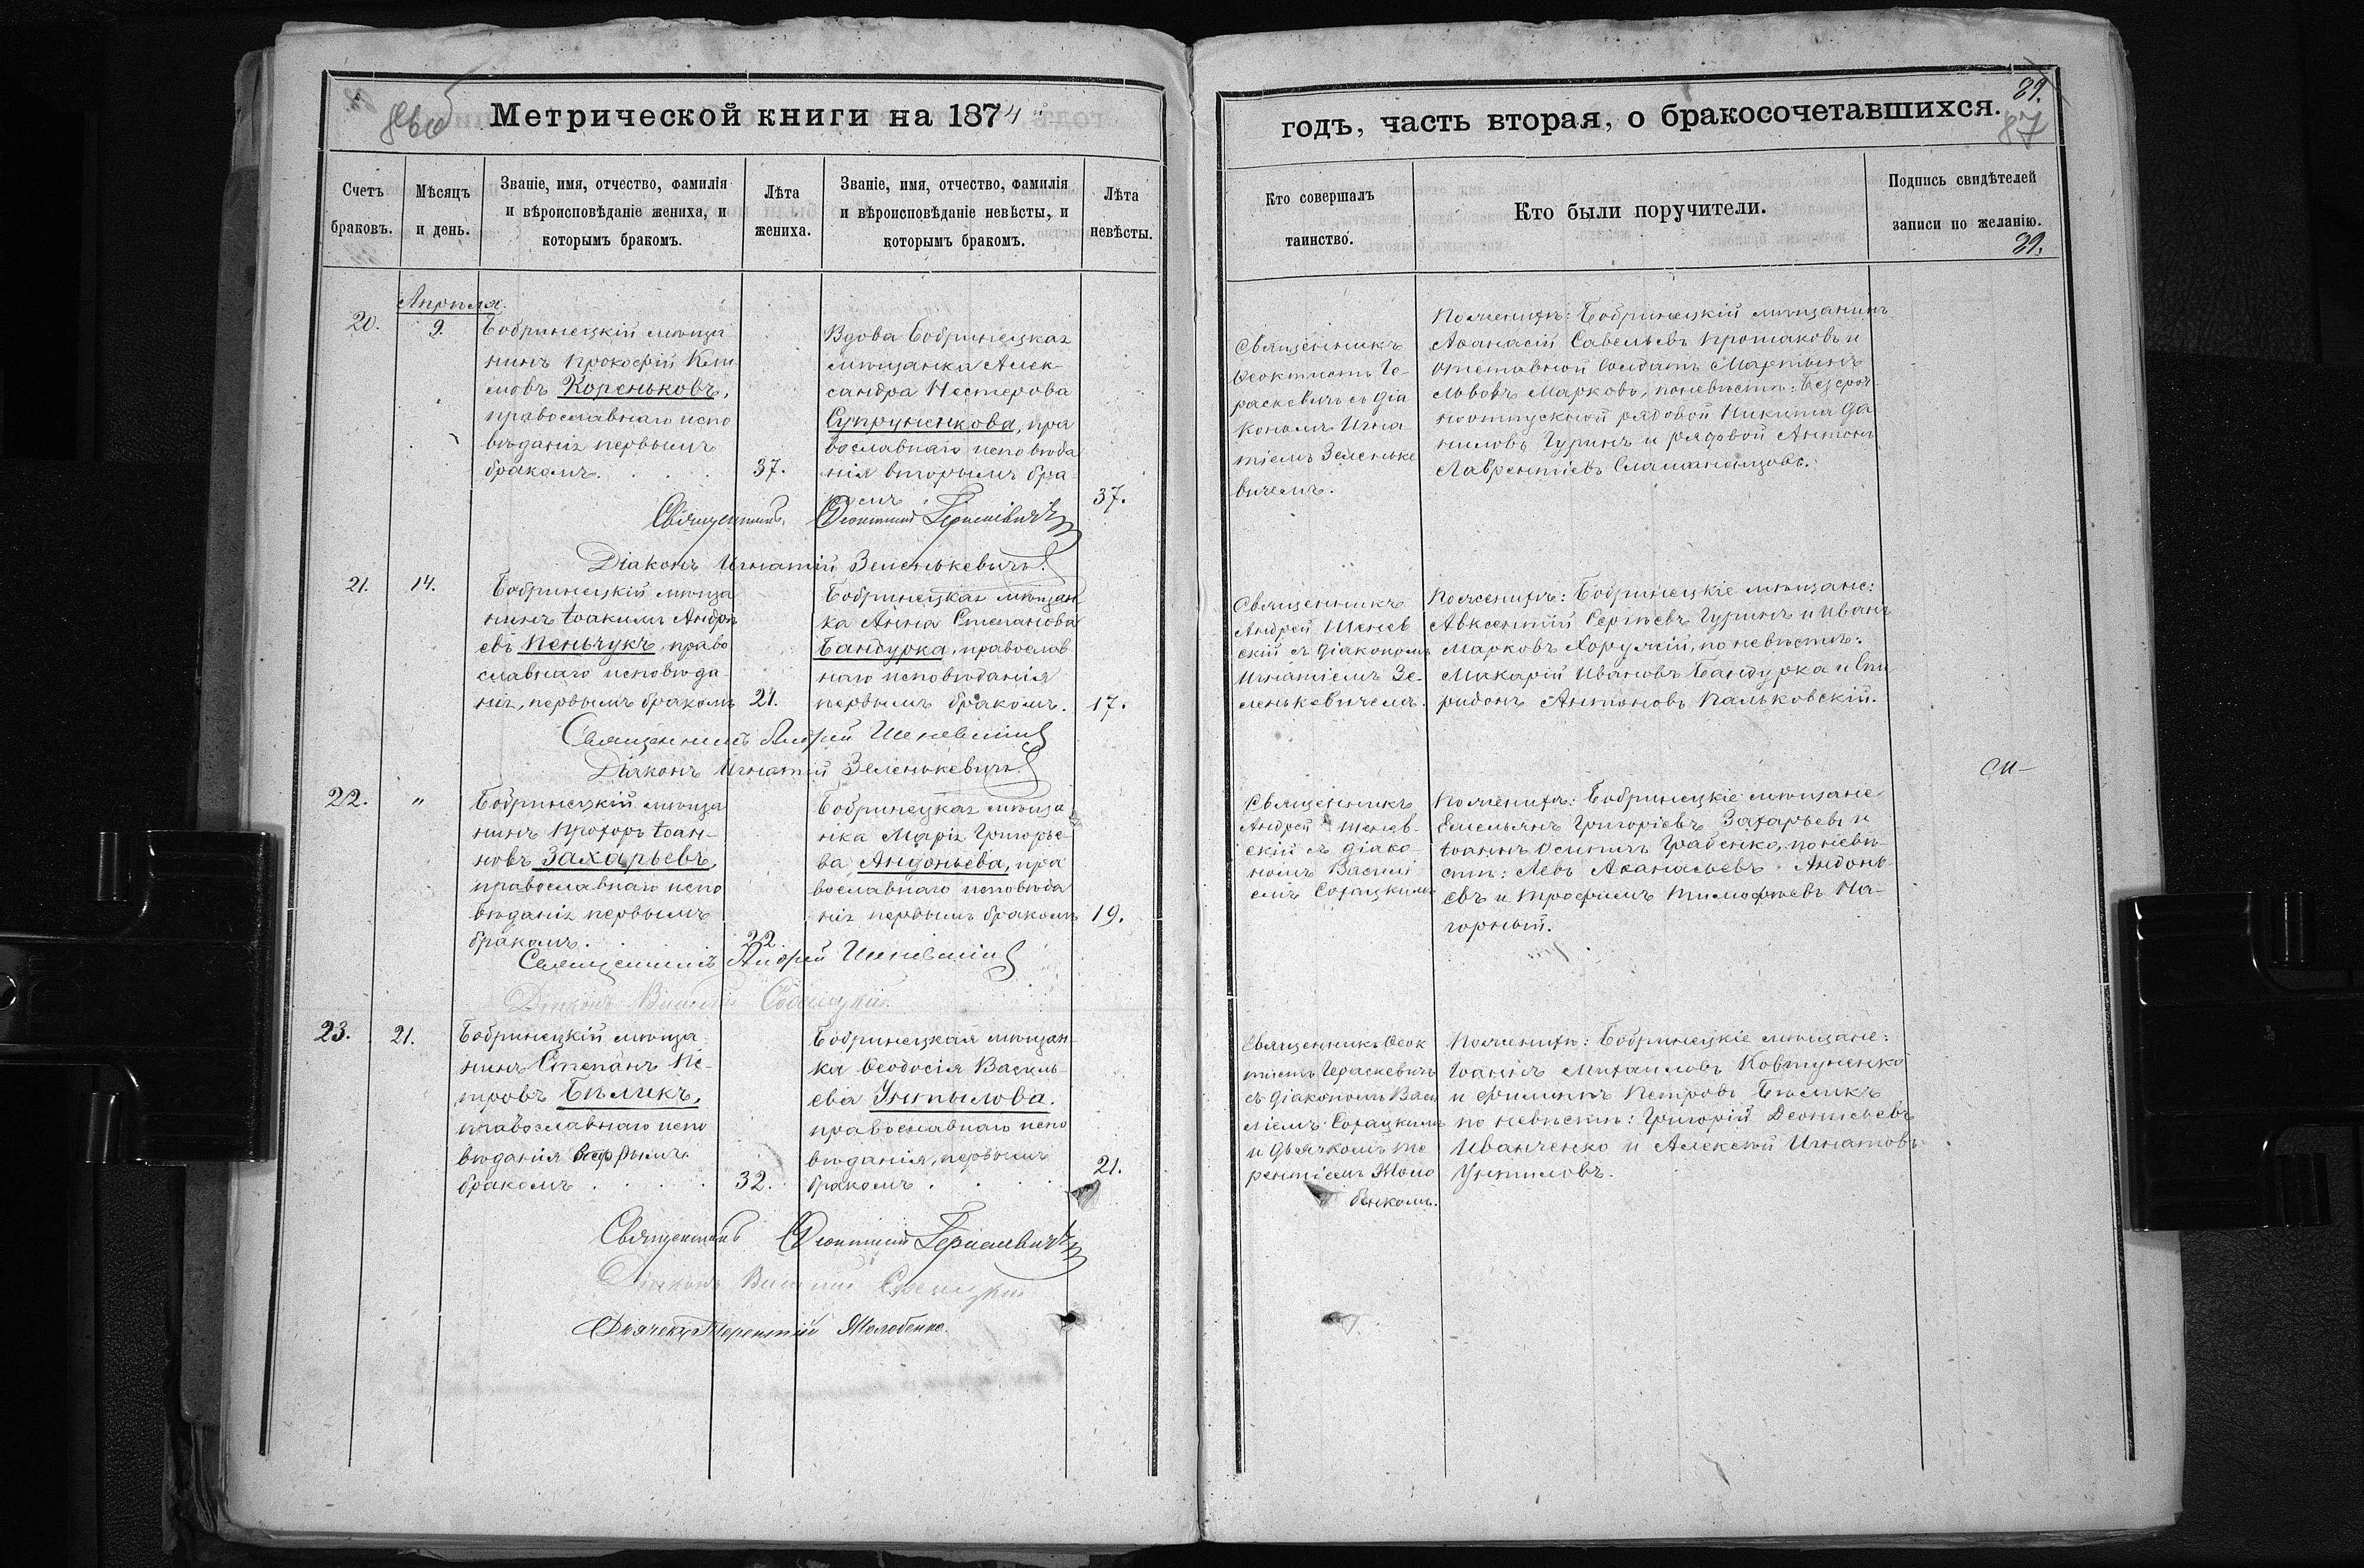 Метрической книги на 1874
годъ, часть вторая, о бракосочетавшихся.
89.
87
Счетъ браковъ.
Мѣсяцъ и день.
Званіе, имя, отчество, фамилія
и вѣроисповѣданіе жениха, и
которымъ бракомъ.
Лѣта жениха.
Званіе, имя, отчество, фамилія
и вѣроисповѣданіе невѣсты, и
которымъ бракомъ.
Лѣта невѣсты.
Кто совершалъ
таинство.
Кто были поручители.
Подпись свидѣтелей
записи по желанію.
89.
Апрѣля
20.
9.
Бобринецкій мѣща
нинъ Прокофій Кли
мовъ Кореньковъ,
православнаго испо
вѣданія первымъ
бракомъ.
37.
Вдова Бобринецкая
мѣщанка Алек-
сандра Нестерова
Супруненкова, пра
вославнаго исповѣда
нія вторымъ бра
комъ
37.
Священникъ
Ѳеоктистъ Ге-
раскевичъ съ діа
кономъ Игна
тіемъ Зенькке
вичемъ.
По женихѣ: Бобринецкій мѣщанинъ
Аѳанасій Савельевъ Протаковъ и
отставной солдатъ Мартынъ
Львовъ Марковъ, по невѣстѣ: Безсроч-
ноотпускной рядовой Никита Да
ниловъ Гуринъ и рядовой Антонъ
Лаврентіевъ
Священникъ Ѳеоктистъ Гераскевичъ
Діаконъ Игнатій Зеленькевичъ
21.
14.
Бобринецкій мѣща
нинъ Іоакимъ Андре
евъ Пеньчукъ, право
славнаго исповѣда
нія, первымъ бракомъ
21.
Бобринецкая мѣщан
ка Анна Степанова
Бандурка, православ
наго исповѣданія
первымъ бракомъ.
17.
Священникъ
Андрей Шенев
скій съ діакономъ
Игнатіемъ Зе-
ленькевичемъ.
По женихѣ: Бобринецкіе мѣщане:
Авксентій Сергѣевъ Гуринъ и Иванъ
Марковъ Хоружій, по невѣстѣ:
Макарій Ивановъ Бандурка и Спи
ридонъ Антоновъ Пальковскій.
Священникъ Андрей Шеневскій
Діаконъ Игнатій Зеленькевичъ
22.
"
Бобринецкій мѣща
нинъ Прохоръ Іоан-
новъ Захарьевъ,
православнаго испо
вѣданія первымъ
бракомъ.
22.
Бобринецкая мѣща
нка Марія Григорье-
ва Андоньева, пра
вославнаго исповѣда
нія первымъ бракомъ
19.
Священникъ
Андрей Шенев-
скій съ діако-
номъ Василі
емъ Сохацкимъ
По женихѣ: Бобринецкіе мѣщане
Емельянъ Григоріевъ Захарьевъ и
Іоаннъ Осиповъ Грабенко, по невѣ
стѣ: Левъ Аѳанасьевъ Андонь-
евъ и Трофимъ Тимофѣевъ На-
горный.
Священникъ Андрей Шеневскій
Діаконъ Василій Сохацкій
23.
21.
Бобринецкій мѣща
нинъ Степанъ Пе-
тровъ Бѣликъ,
православнаго испо
вѣданія
бракомъ
32.
Бобринецкая мѣщан-
ка Ѳеодосія Василь-
ева Унтылова.
православнаго испо
вѣданія, первымъ
бракомъ
21.
Священникъ Ѳеок
тистъ Гераскевичъ
съ діакономъ Васи
ліемъ Сохацкимъ
и дьячкомъ Те
рентіемъ Жоло
бенкомъ.
По женихѣ: Бобринецкіе мѣщане:
Іоаннъ Михаиловъ Ковтуненко
и Филиппъ Петровъ Бѣликъ
по невѣстѣ: Григорій Деонисьевъ
Иванченко и Алексѣй Игнатовъ
Унтиловъ.
Священникъ Ѳеоктистъ Гераскевичъ
Діаконъ Василій Сохацкій
Дьячекъ Терентій Жолобенко.